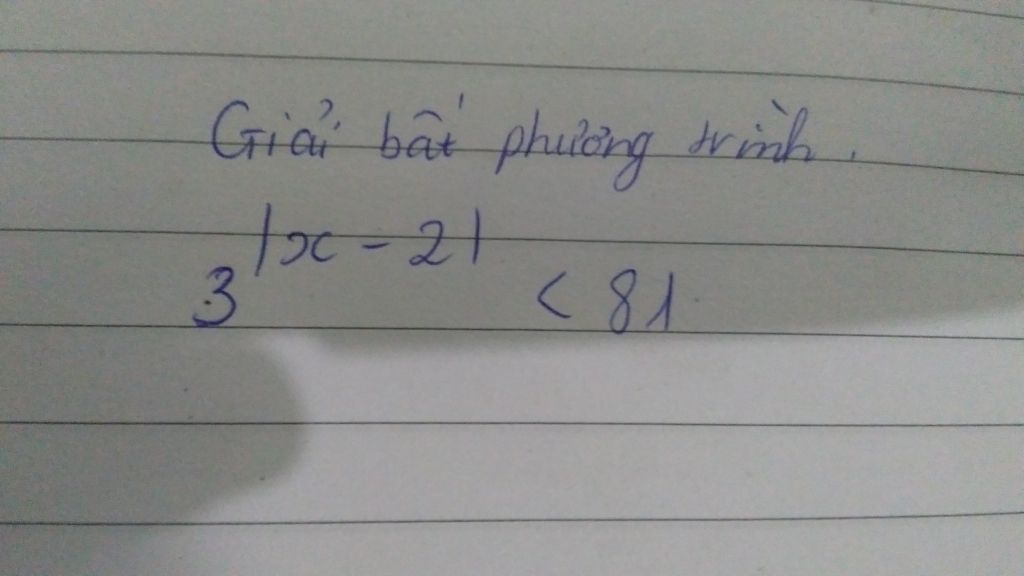 Giải bất phương trình.
3^|x - 2| < 81